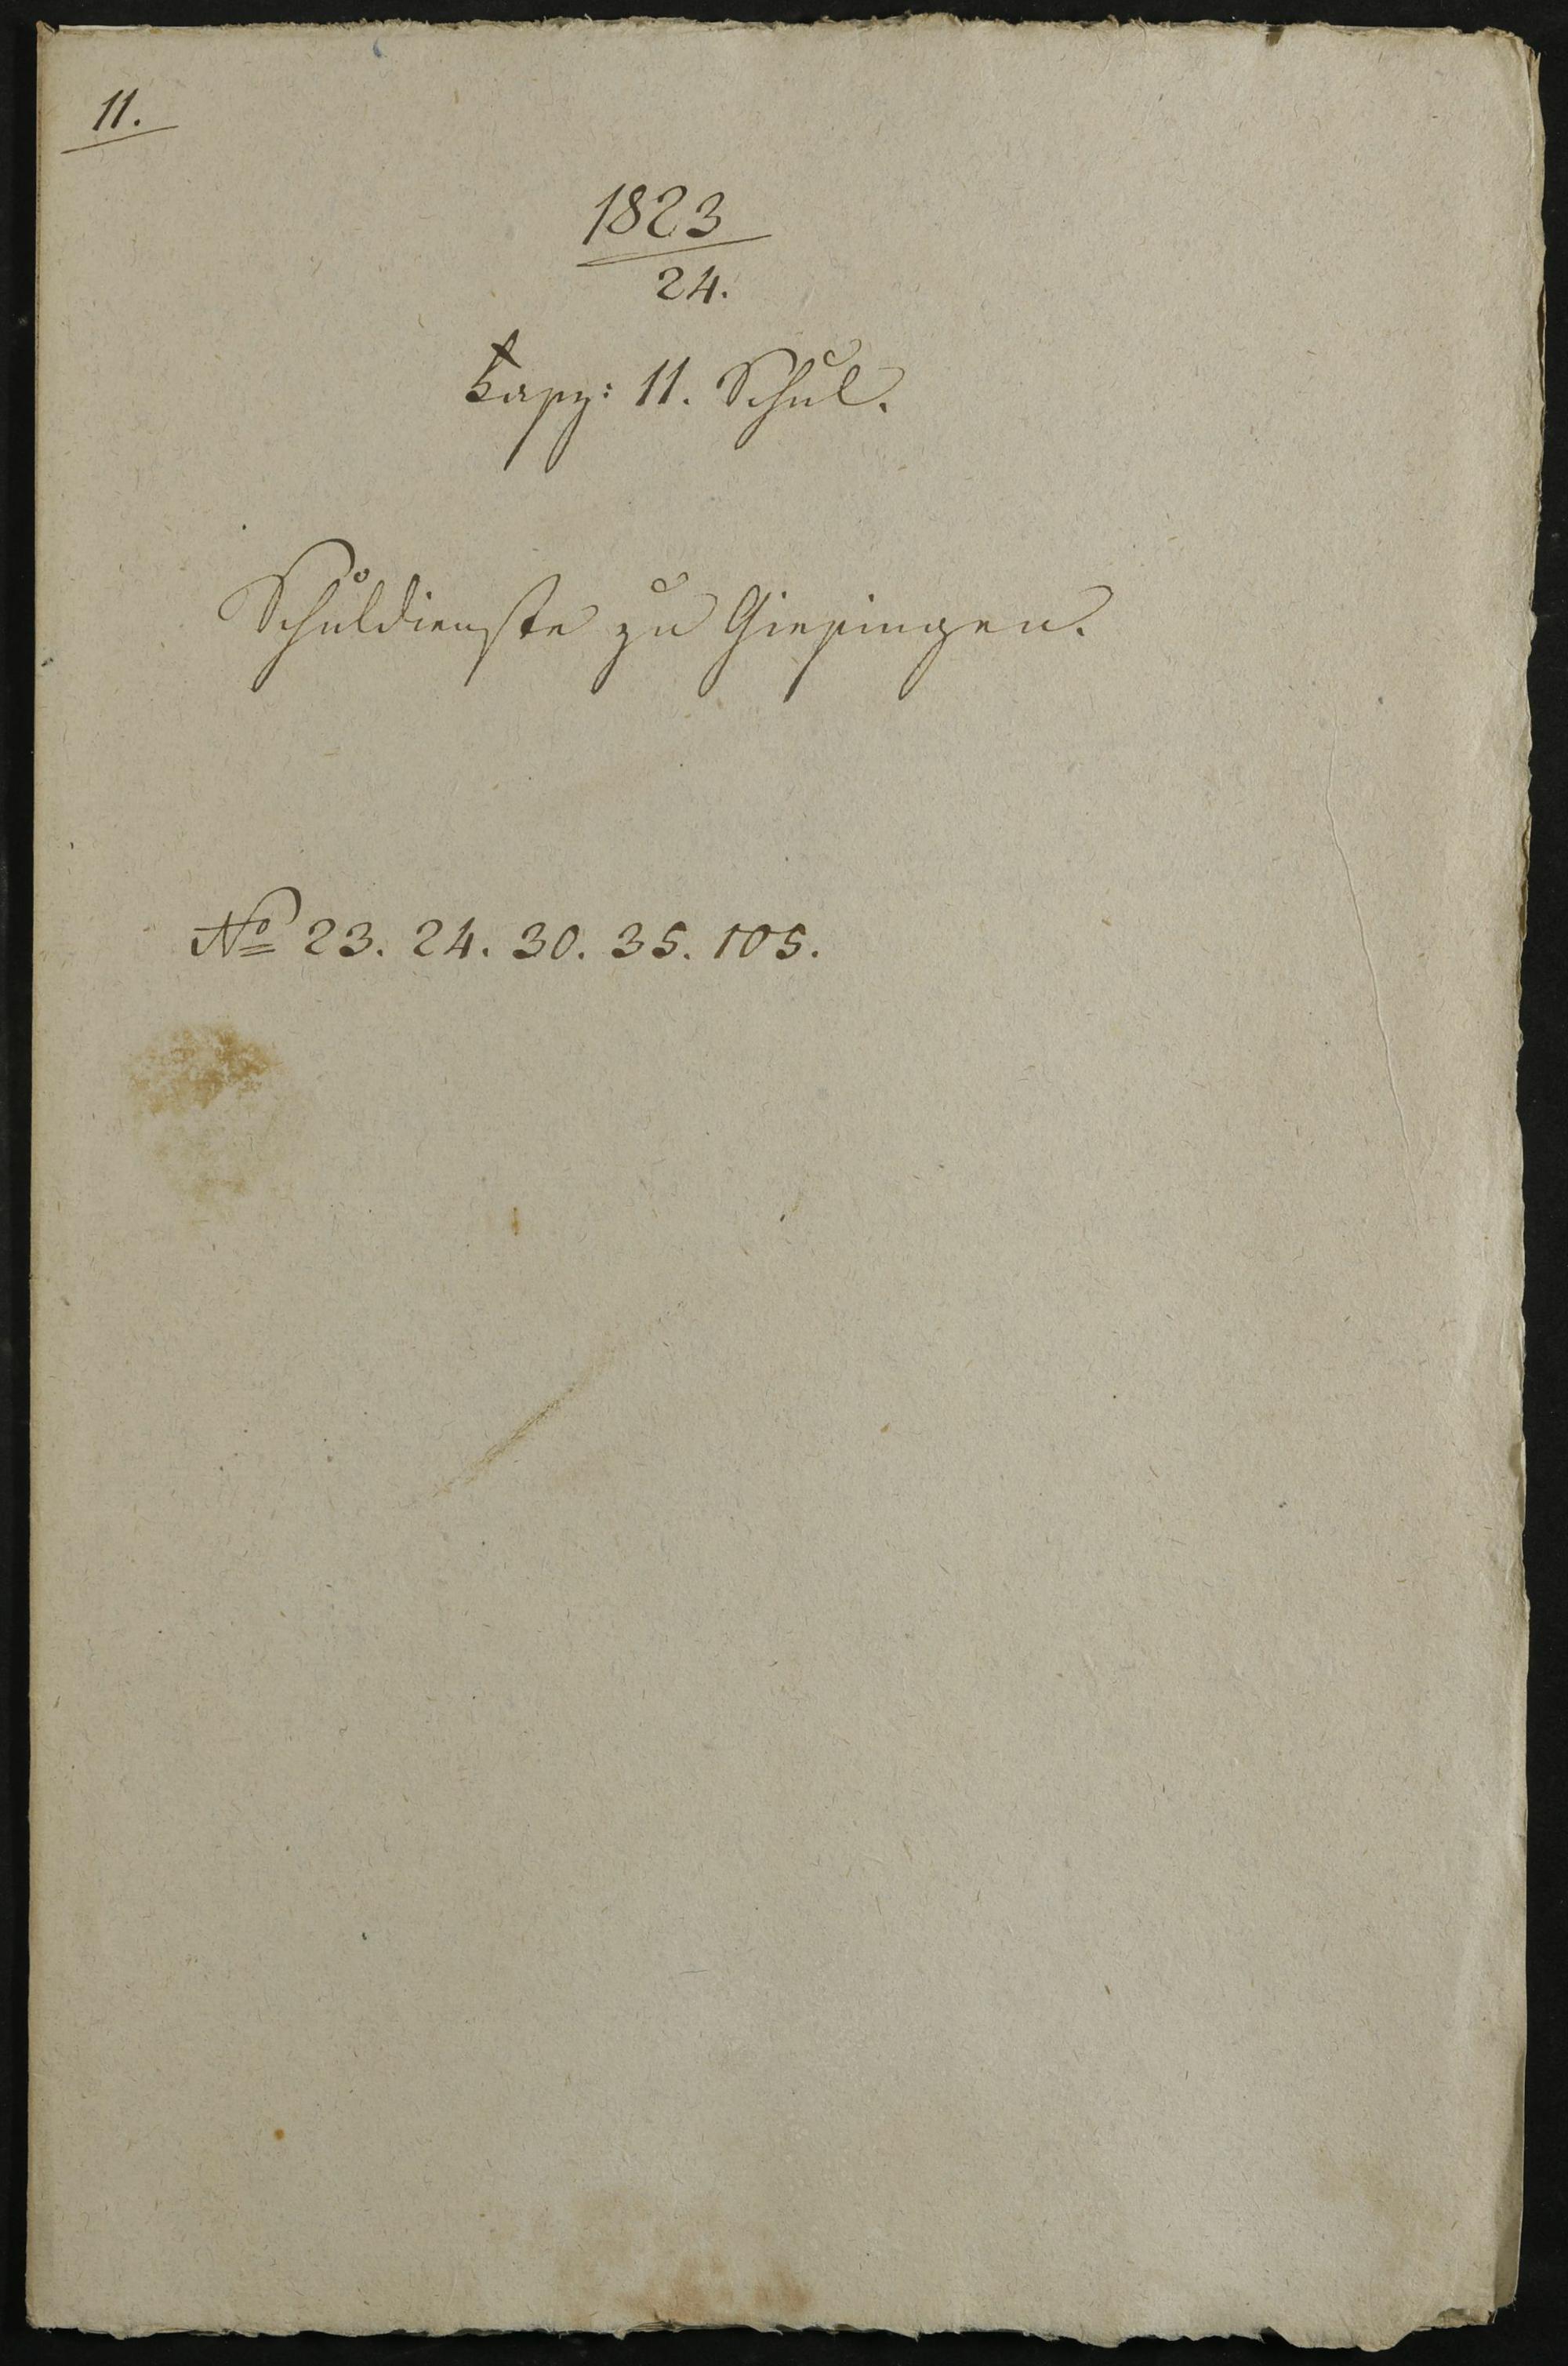 11.
1823
24.
11. Schul.
Schuldienste zu
No 23. 24. 30. 35. 105.